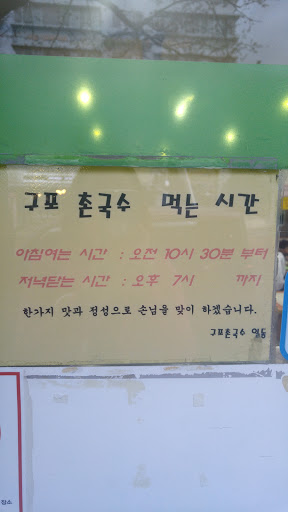 구포 촌국수 먹는 시간
아침여는 시간 : 오전 10시 30분 부터
저녁닫는 시간 : 오후 7시 까지
한가지 맛과 정성으로 손님을 맞이 하겠습니다.
구포촌국수 일동
장소